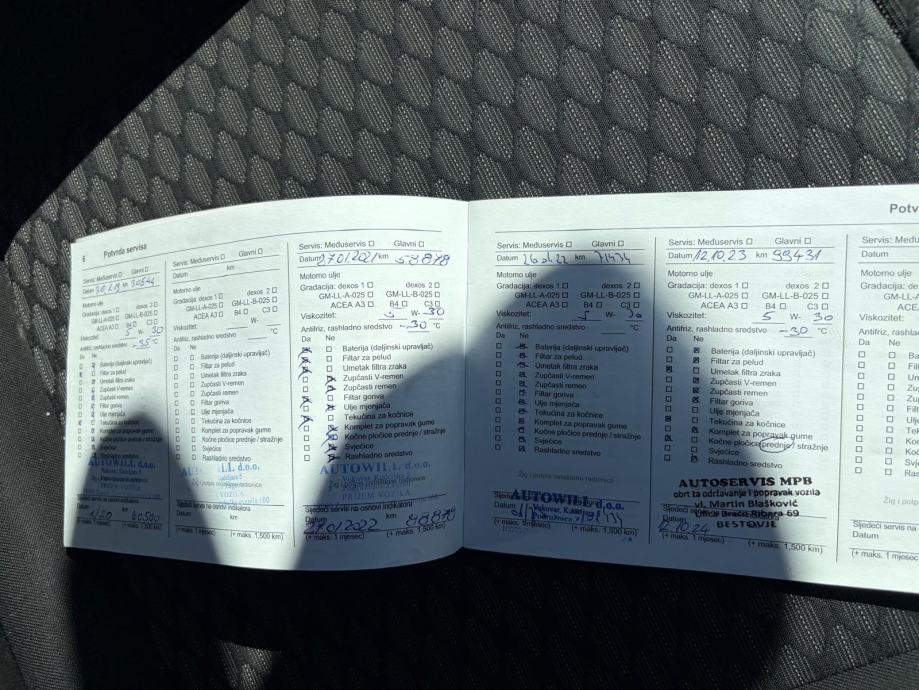 6 Potvrda servisa
Servis: Međuservis ☐ Glavni ☐
Datum km
Motorno ulje
Gradacija: dexos 1 ☐ dexos 2 ☐
GM-LL-A-025 ☐ GM-LL-B-025 ☐
ACEA A3 ☐ B4 ☐ C3 ☐
Viskozitet: 5 W- 30
Antifriz, rashladno sredstvo -35 °C
Da Ne
Baterija (daljinski upravljač)
Filtar za pelud
Umetak filtra zraka
Zupčasti V-remen
Zupčasti remen
Filtar goriva
Ulje mjenjača
Tekućina za kočnice
AUTOWILL d.o.o.
Sljedeći servis na osnovi indikatora
Datum 1/20 km 60500
(+ maks. 1 mjesec) (+ maks. 1,500 km)
Servis: Međuservis ☐ Glavni ☐
Datum km
Motorno ulje
Gradacija: dexos 1 ☐ dexos 2 ☐
GM-LL-A-025 ☐ GM-LL-B-025 ☐
ACEA A3 ☐ B4 ☐ C3 ☐
Viskozitet: W-
Antifriz, rashladno sredstvo °C
Da Ne
Baterija (daljinski upravljač)
Filtar za pelud
Umetak filtra zraka
Zupčasti V-remen
Zupčasti remen
Filtar goriva
Ulje mjenjača
Tekućina za kočnice
Komplet za popravak gume
Kočne pločice prednje / stražnje
Svjećice
Rashladno sredstvo
PRIJEM VOZILA
Sljedeći servis na osnovi indikatora
Datum km
(+ maks. 1 mjesec) (+ maks. 1,500 km)
Servis: Međuservis ☐ Glavni ☐
Datum 27.01.2021 km 58878
Motorno ulje
Gradacija: dexos 1 ☐ dexos 2 ☐
GM-LL-A-025 ☐ GM-LL-B-025 ☐
ACEA A3 ☐ B4 ☐ C3 ☐
Viskozitet: 5 W- 30
Antifriz, rashladno sredstvo -30 °C
Da Ne
Baterija (daljinski upravljač)
Filtar za pelud
Umetak filtra zraka
Zupčasti V-remen
Zupčasti remen
Filtar goriva
Ulje mjenjača
Tekućina za kočnice
Komplet za popravak gume
Kočne pločice prednje / stražnje
Svjećice
Rashladno sredstvo
AUTOWILL d.o.o.
PRIJEM VOZILA
Sljedeći servis na osnovi indikatora
Datum 27.01.2022 km 88878
(+ maks. 1 mjesec) (+ maks. 1,500 km)
Servis: Međuservis ☐ Glavni ☐
Datum km 71474
Motorno ulje
Gradacija: dexos 1 ☐ dexos 2 ☐
GM-LL-A-025 ☐ GM-LL-B-025 ☐
ACEA A3 ☐ B4 ☐ C3 ☐
Viskozitet: 5 W- 30
Antifriz, rashladno sredstvo -30 °C
Da Ne
Baterija (daljinski upravljač)
Filtar za pelud
Umetak filtra zraka
Zupčasti V-remen
Zupčasti remen
Filtar goriva
Ulje mjenjača
Tekućina za kočnice
Komplet za popravak gume
Kočne pločice prednje / stražnje
Svjećice
Rashladno sredstvo
Žig i potpis ovlaštene radionice
AUTOWILL d.o.o.
Datum
(+ maks. 1 mjesec) (+ maks. 1,500 km)
Potv
Servis: Međuservis ☐ Glavni ☐
Datum 12.10.23 km 99431
Motorno ulje
Gradacija: dexos 1 ☐ dexos 2 ☐
GM-LL-A-025 ☐ GM-LL-B-025 ☐
ACEA A3 ☐ B4 ☐ C3 ☐
Viskozitet: 5 W- 30
Antifriz, rashladno sredstvo -30 °C
Da Ne
Baterija (daljinski upravljač)
Filtar za pelud
Umetak filtra zraka
Zupčasti V-remen
Zupčasti remen
Filtar goriva
Ulje mjenjača
Tekućina za kočnice
Komplet za popravak gume
Kočne pločice prednje / stražnje
Svjećice
Rashladno sredstvo
AUTOSERVIS MPB
obrt za održavanje i popravak vozila
vl. Martin Blašković
Office Braće Ribara 69
BESTOVJE
10.24
(+ maks. 1 mjesec) (+ maks. 1,500 km)
Servis: Me
Datum
Motorno ulje
Gradacija: de
GM-LL-A
ACE
Viskozitet:
Antifriz, rashl
Da Ne
Ba
Filt
Um
Zu
Zu
Filt
Ulj
Tek
Ko
Ko
Svj
Ra
Žig i potpis
Sljedeći servis
Datum
(+ maks. 1 mje